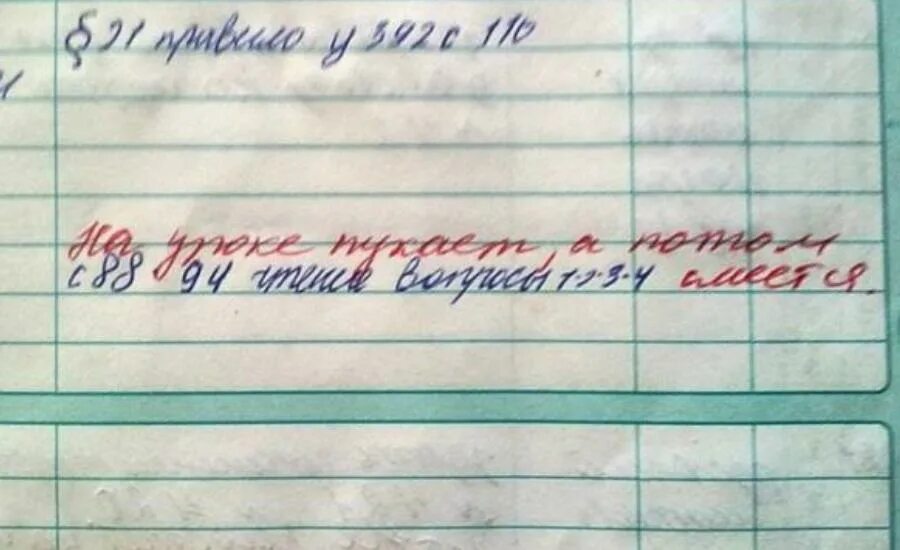 § 21 правило у 392 с 110
На уроке пукает, а потом
с 88 94 чтение вопросы 1-2-3-4 смеется.